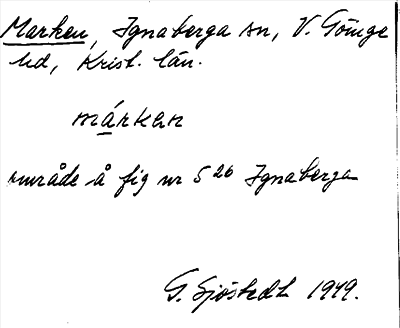 Marken, Ignaberga sn, V. Göinge
hd, Krist. län.
márkan
område å fig nr 5 26 Ignaberga
G. Sjöstedt 1949.